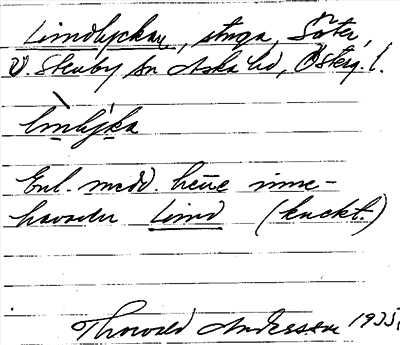 Lindlyckan, stuga, Säter,
V. Stenby sn Aska hd, Östg. l.
linlyka
Enl. medd. heue inne-
havaren Lind (knekt.)
Thorvald Andersson 1935.